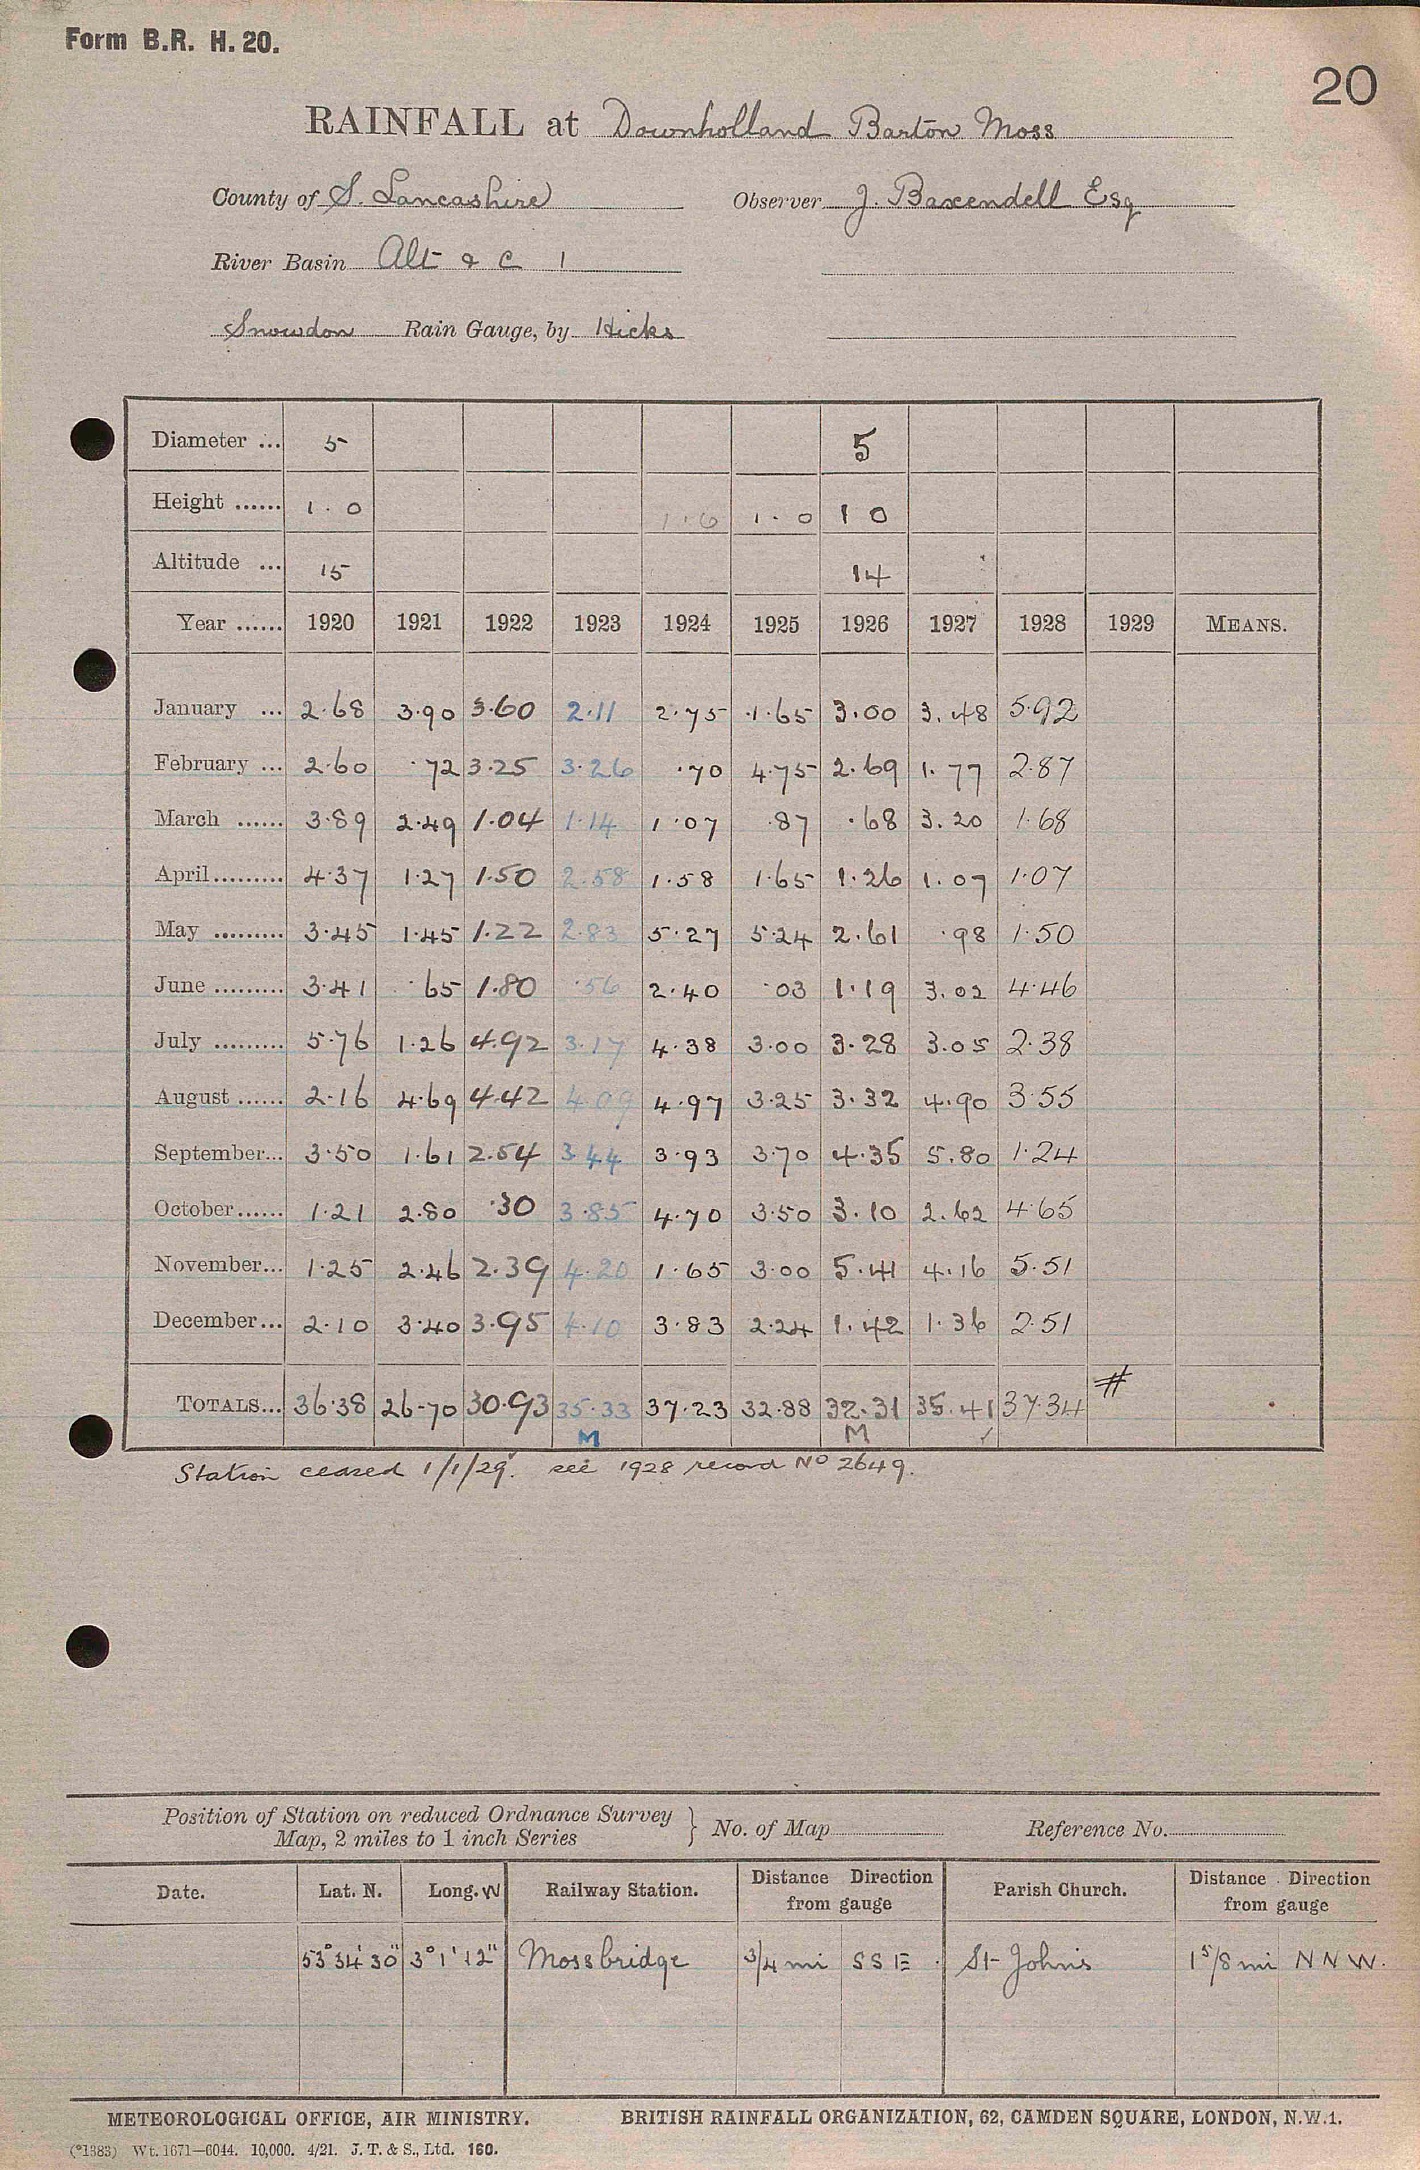 Form B.R. H. 20.
20
RAINFALL at Downholland Barton Moss
County of S. Lancashire Observer J. Baxendell Esq
River Basin Alt & C 1
Snowdon Rain Gauge, by Hicks
Diameter ... 5 5
Height ...... 1.0 1.0 1.0 1 0
Altitude ... 15 14
Year ...... 1920 1921 1922 1923 1924 1925 1926 1927 1928 1929 MEANS.
January ... 2.68 3.90 3.60 2.11 2.75 1.65 3.00 3.48 5.92
February ... 2.60 .72 3.25 3.26 .70 4.75 2.69 1.77 2.87
March ...... 3.89 2.49 1.04 1.14 1.07 .87 .68 3.20 1.68
April......... 4.37 1.27 1.50 2.58 1.58 1.65 1.26 1.07 1.07
May ......... 3.45 1.45 1.22 2.83 5.27 5.24 2.61 .98 1.50
June ......... 3.41 .65 1.80 .56 2.40 .03 1.19 3.02 4.46
July ......... 5.76 1.26 4.92 3.17 4.38 3.00 3.28 3.05 2.38
August ...... 2.16 4.69 4.42 4.09 4.97 3.25 3.32 4.90 3.55
September... 3.50 1.61 2.54 3.44 3.93 3.70 4.35 5.80 1.24
October...... 1.21 2.80 .30 3.85 4.70 3.50 3.10 2.62 4.65
November... 1.25 2.46 2.39 4.20 1.65 3.00 5.41 4.16 5.51
December... 2.10 3.40 3.95 4.10 3.83 2.24 1.42 1.36 2.51
TOTALS... 36.38 26.70 30.93 35.33 37.23 32.88 32.31 35.41 37.34 #
M M ✓
Station ceased 1/1/29. see 1928 record No 2649.
Position of Station on reduced Ordnance Survey
Map, 2 miles to 1 inch Series } No. of Map Reference No.
Date. Lat. N. Long. W Railway Station. Distance Direction from gauge Parish Church. Distance Direction from gauge
53° 34' 30" 3° 1' 12" Mossbridge 3/4 mi S S E St Johns 1 5/8 mi N N W.
METEOROLOGICAL OFFICE, AIR MINISTRY. BRITISH RAINFALL ORGANIZATION, 62, CAMDEN SQUARE, LONDON, N.W.1.
(*1383) Wt. 1671—6044. 10,000. 4/21. J. T. & S., Ltd. 160.